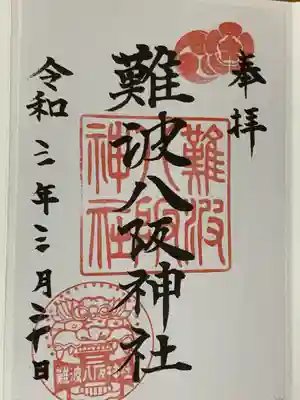 奉拝
難波八阪神社
令和二年三月二十日
難波
八阪
神社
難波八阪神社